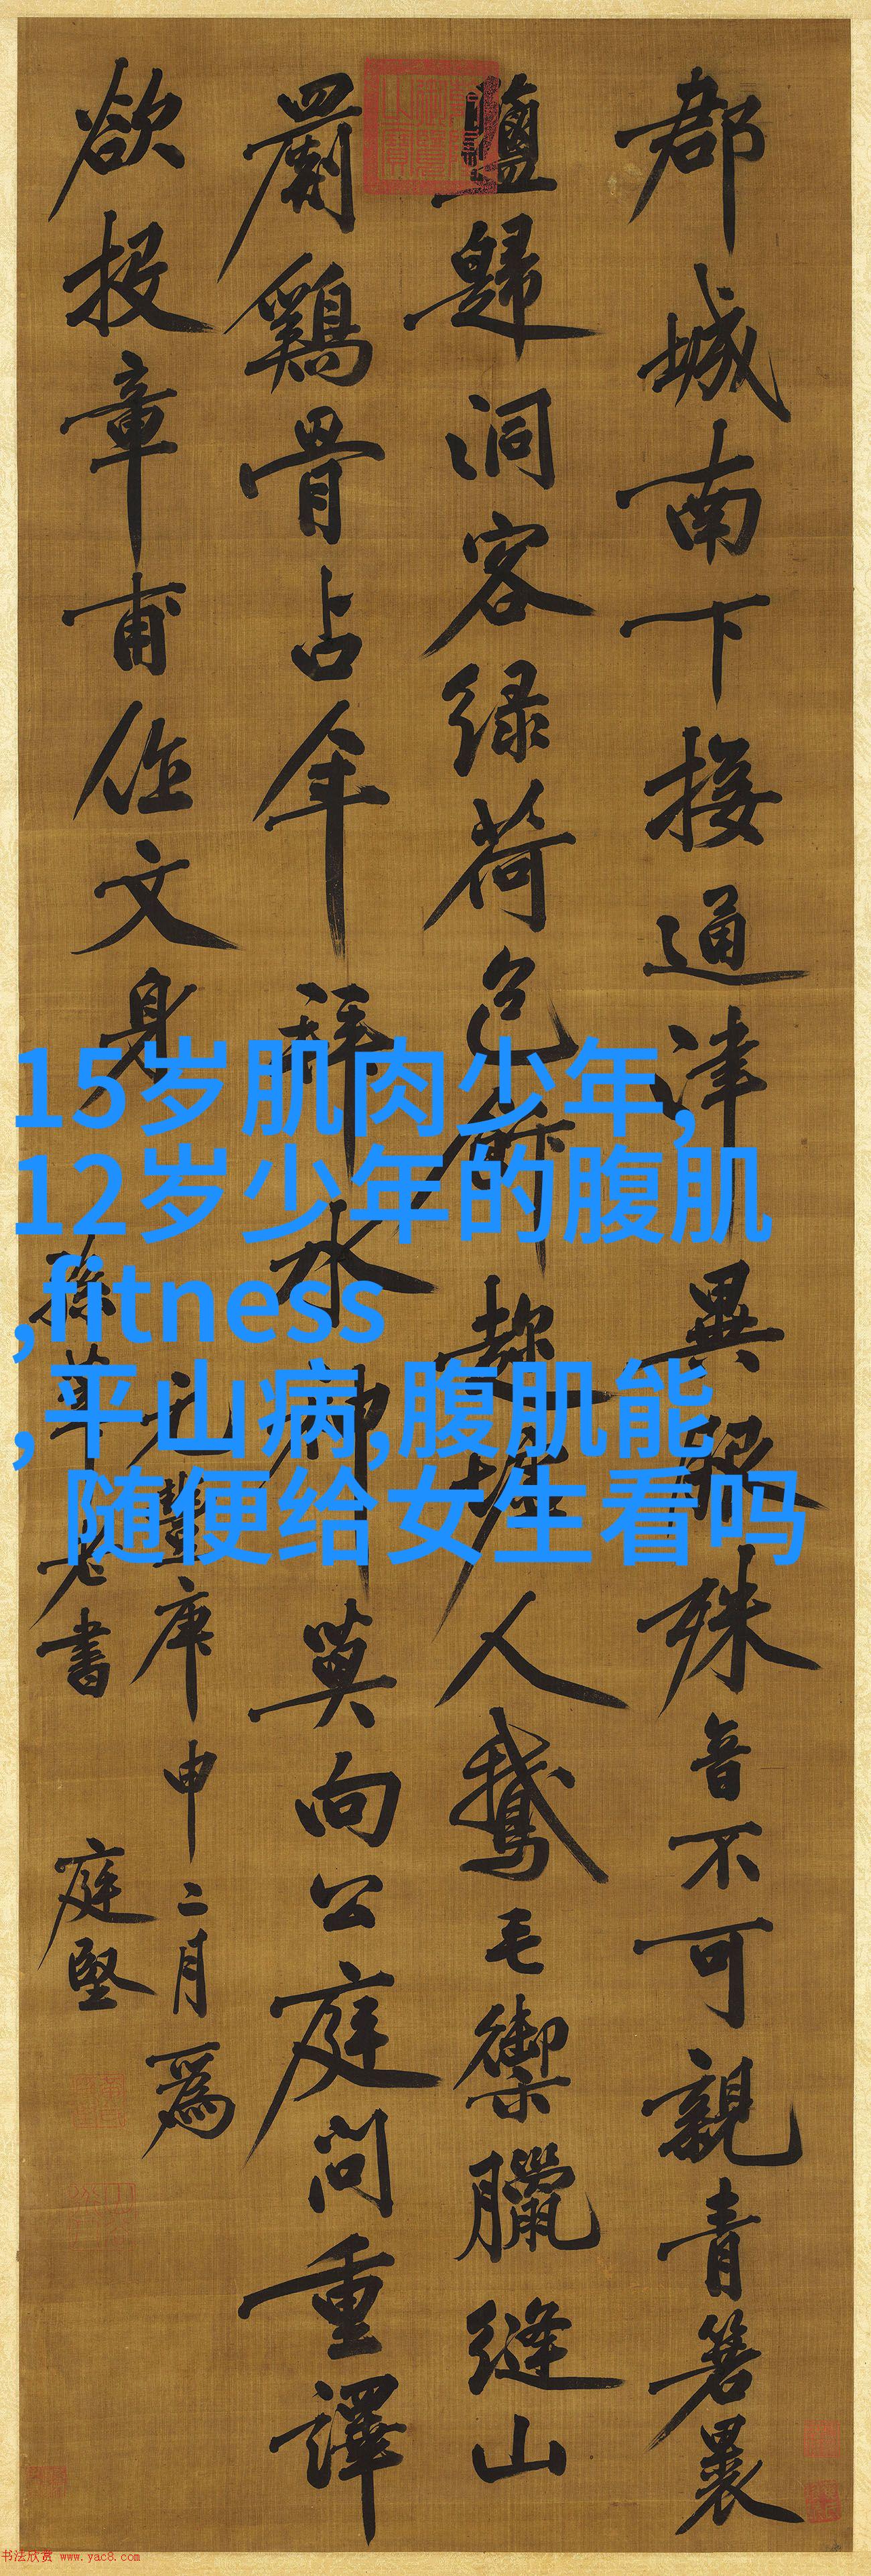 郡城南下接通津異服殊音不可親青箬裹
鹽歸洞客绿荷包飰趂墟人鵞毛禦臘縫山
罽鷄骨占年拜水神莫向公庭問重譯
欲投章甫作文身
元豐庚申二月為
孫莘老書 庭堅
15岁肌肉少年,
12岁少年的腹肌
,fitness
,平山病,腹肌能
随便给女生看吗
书法欣赏 www.yac8.com